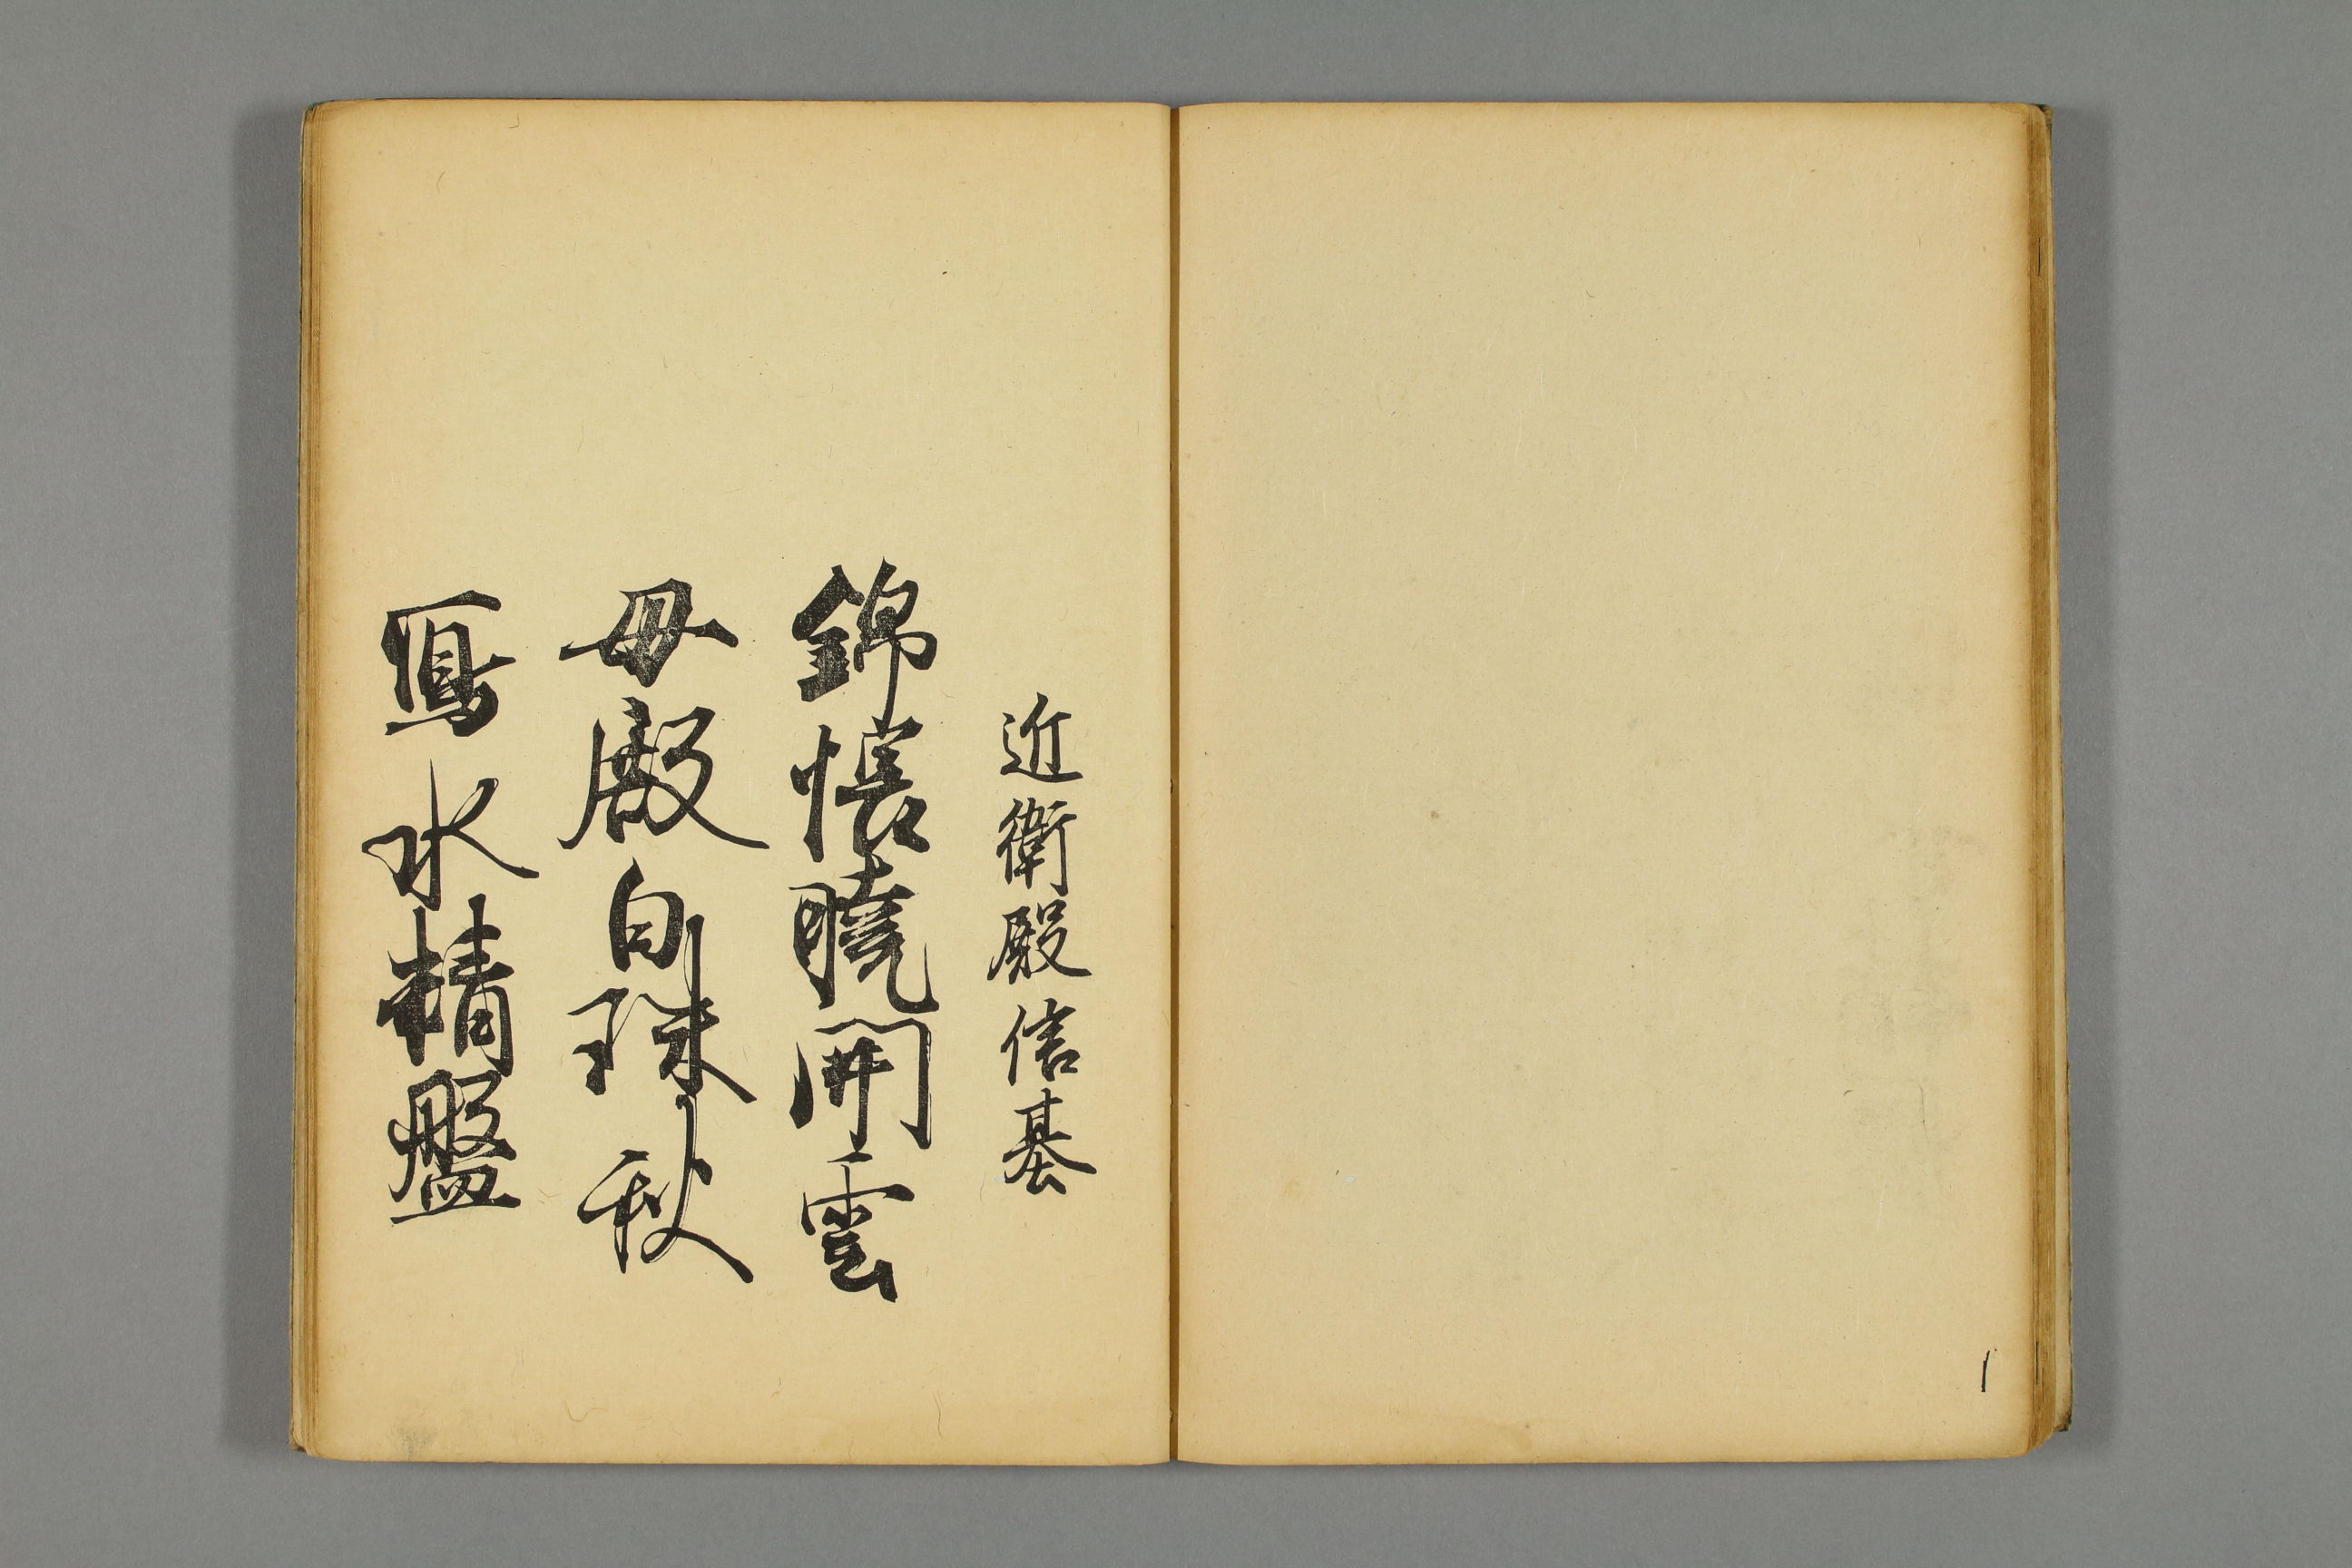 近衛殿信基
錦帳曉開雲
母殿白珠秋
寫水精盤
1